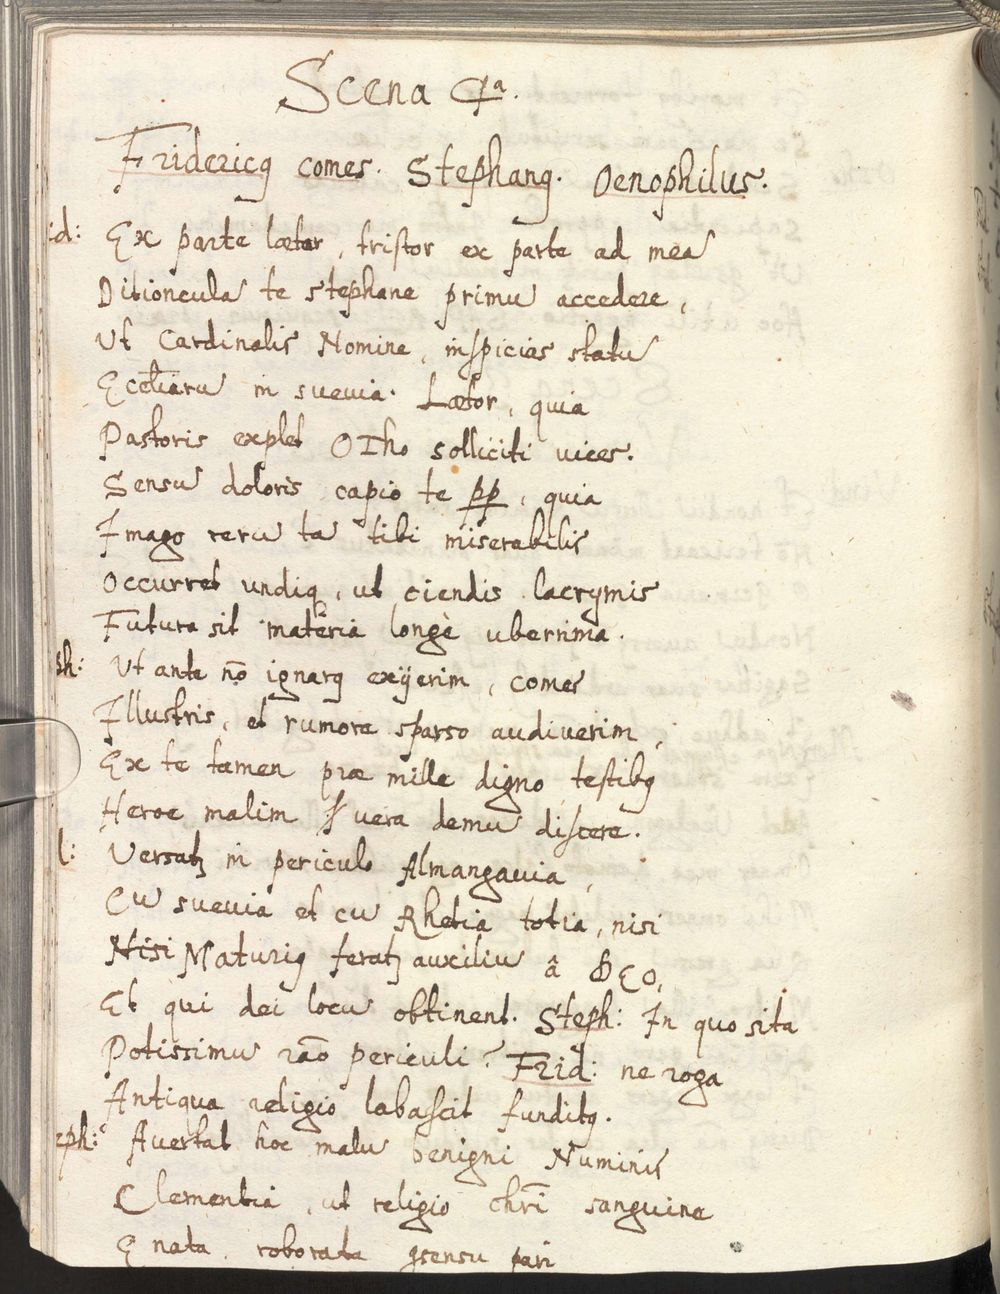 Scena 4ta.
Fridericq comes. Stephanq. Oenophilus.
id: Ex parte lætor, tristor ex parte ad mea
Ditioncula te stephane primu accedere,
Ut Cardinalis Nomine, inspicias statu
Eccliaru in suevia. Lætor, quia
Pastoris explet Otho solliciti vices.
Sensu doloris capio te pp, quia
Imago reru ta tibi miserabilis
Occurret undiq, ut ciendis lacrymis
Futura sit materia longè uberrima.
ph: Ut ante nõ ignarq exijerim, comes
Illustris, et rumore sparso audiverim,
Ex te tamen præ mille digno testibq
Heroe malim vera demu discere.
l: Versatz in periculo Almangavia,
Cu suevia et cu Rhetia totia, nisi
Nisi Maturiq feratz auxiliu â DEO,
Et qui dei locu obtinent. Steph: In quo sita
Potissimu rão periculi? Frid: ne roga
Antiqua religio labascit funditq.
eph: Avertat hoc malu benigni Numinis
Clementia, ut religio chri sanguine
E nata roborata qsensu pari